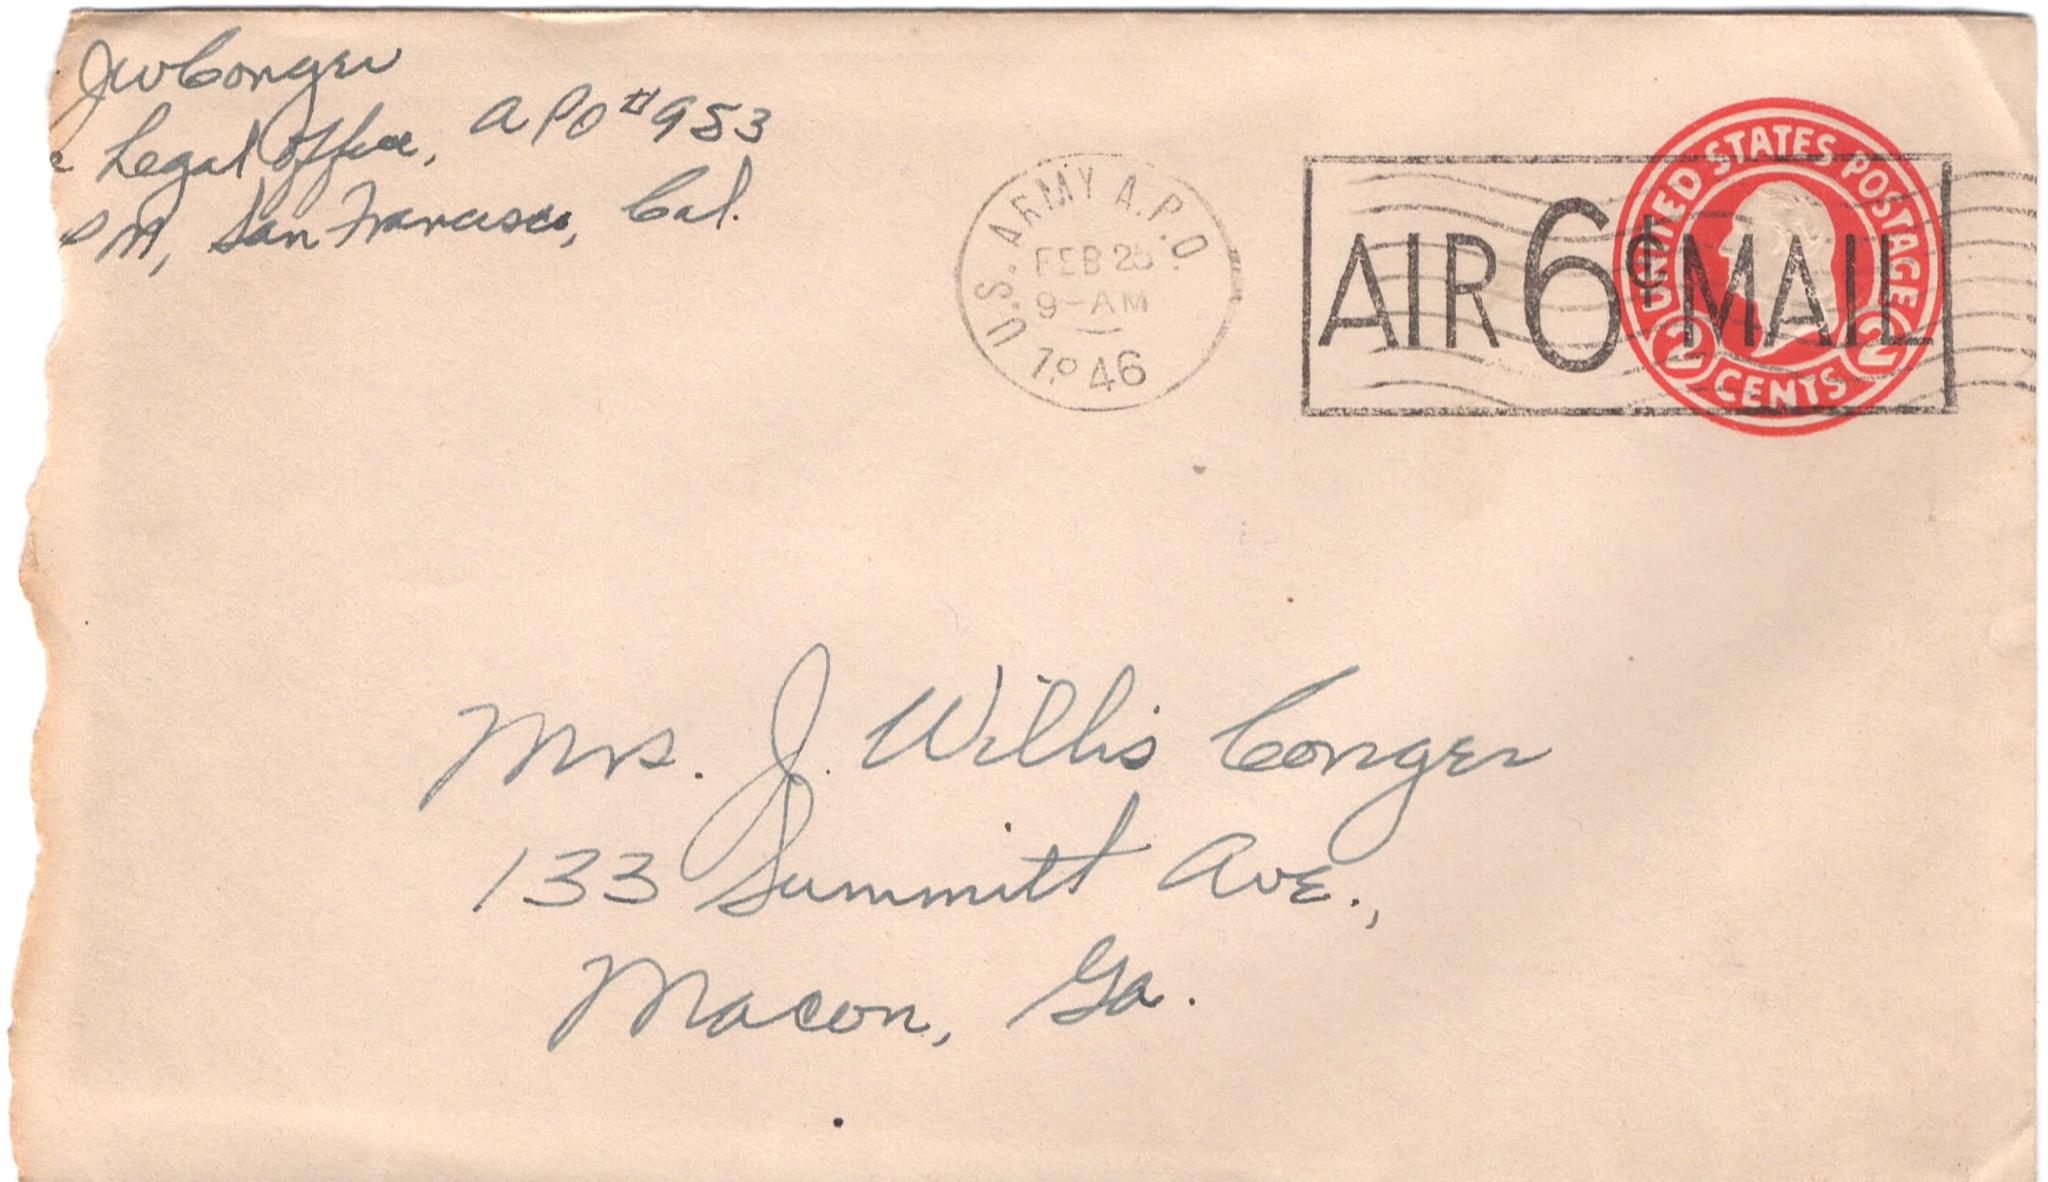 JW Conger
Legal Office, APO #953
PM, San Francisco, Cal.
U.S. ARMY A.P.O.
FEB 25
9-AM
1946
AIR 6¢ MAIL
UNITED STATES POSTAGE
2 CENTS 2
Mrs. J. Willis Conger
133 Summitt Ave.,
Macon, Ga.